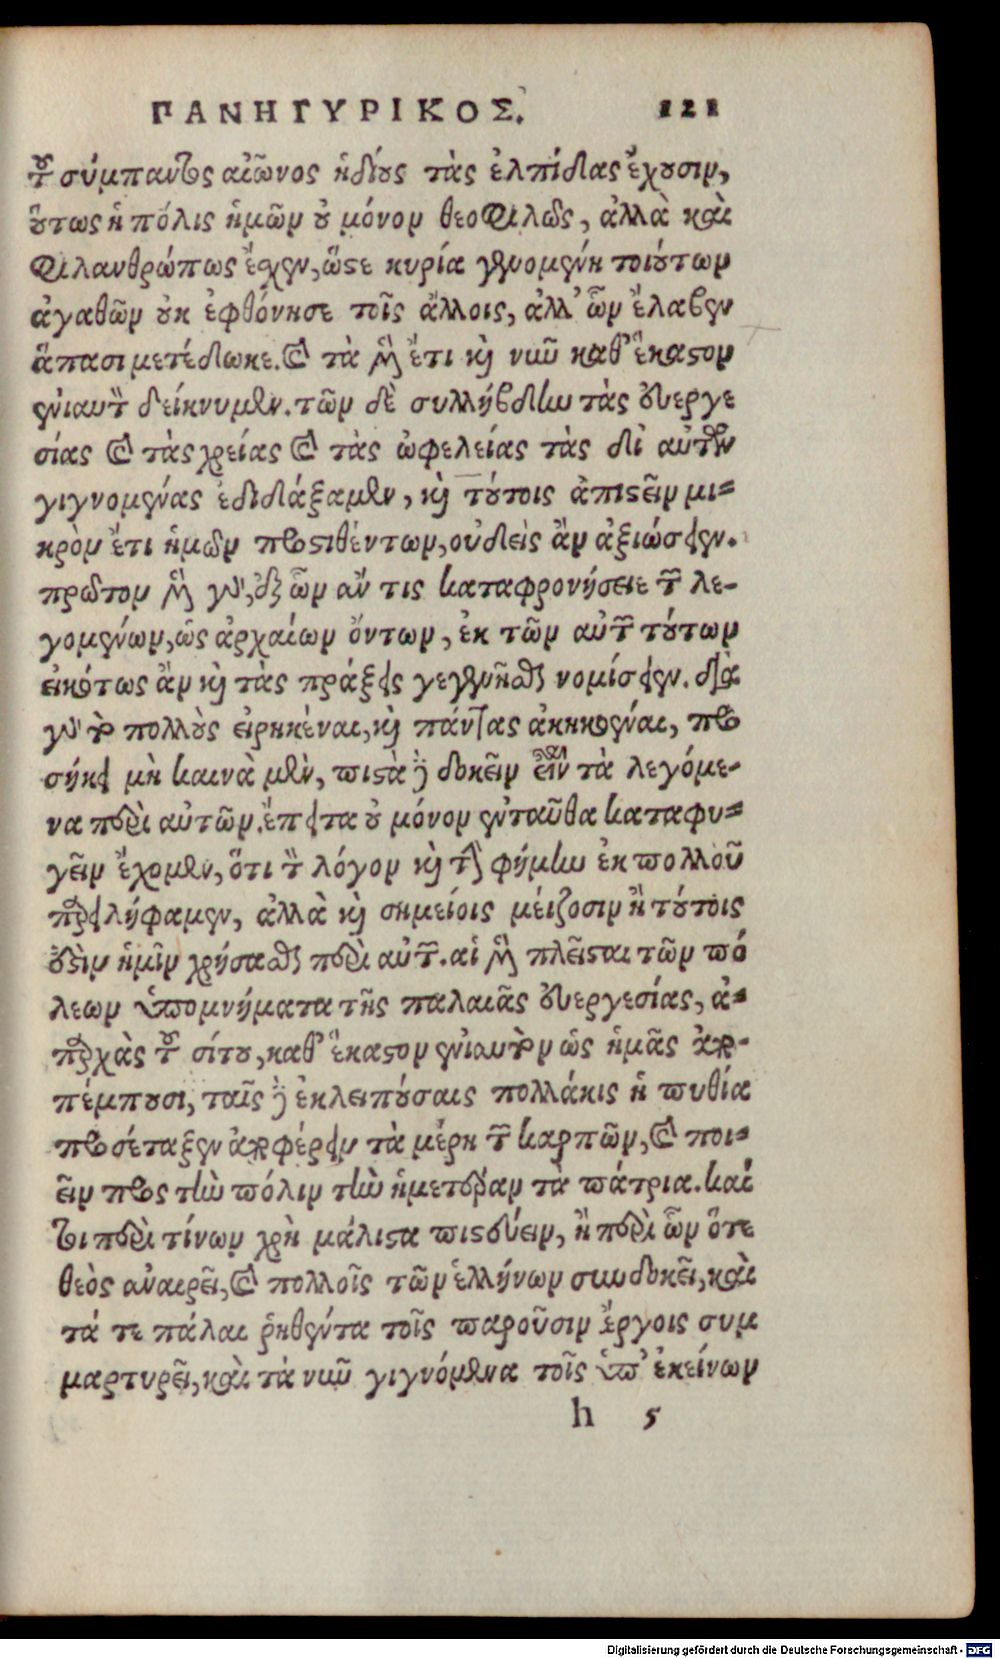 ΠΑΝΗΓΥΡΙΚΟΣ. 121
τοῦ σύμπαντος αἰῶνος ἡδίους τὰς ἐλπίδας ἔχουσιν,
οὕτως ἡ πόλις ἡμῶν οὐ μόνον θεοφιλῶς, ἀλλὰ καὶ
φιλανθρώπως ἔσχεν, ὥστε κυρία γενομένη τοιούτων
ἀγαθῶν οὐκ ἐφθόνησε τοῖς ἄλλοις, ἀλλ' ὧν ἔλαβεν
ἅπασι μετέδωκε. καὶ τὰ μὲν ἔτι καὶ νῦν καθ' ἕκαστον
ἐνιαυτὸν δείκνυμεν. τῶν δὲ συλλήβδην τὰς εὐεργε
σίας καὶ τὰς χρείας καὶ τὰς ὠφελείας τὰς δι' αὐτῶν
γιγνομένας ἐδιδάξαμεν, καὶ τούτοις ἀπιστεῖν μι-
κρὸν ἔτι ἡμῶν προστιθέντων, οὐδεὶς ἂν ἀξιώσειεν.
πρῶτον μὲν γὰρ, ἐξ ὧν ἄν τις καταφρονήσειε τῶν λε-
γομένων, ὡς ἀρχαίων ὄντων, ἐκ τῶν αὐτῶν τούτων
εἰκότως ἂν καὶ τὰς πράξεις γεγενῆσθαι νομίσειεν. διὰ
γὰρ τὸ πολλοὺς εἰρηκέναι, καὶ πάντας ἀκηκοέναι, προ
σήκει μὴ καινὰ μὲν, πιστὰ δὲ δοκεῖν εἶναι τὰ λεγόμε-
να περὶ αὐτῶν. ἔπειτα οὐ μόνον ἐνταῦθα καταφυ-
γεῖν ἔχομεν, ὅτι τὸν λόγον καὶ τὴν φήμην ἐκ πολλοῦ
παρειλήφαμεν, ἀλλὰ καὶ σημείοις μείζοσιν ἢ τούτοις
ἔστιν ἡμῖν χρήσασθαι περὶ αὐτῶν. αἱ μὲν πλεῖσται τῶν πό
λεων ὑπομνήματα τῆς παλαιᾶς εὐεργεσίας, ἀ-
παρχὰς τοῦ σίτου, καθ' ἕκαστον ἐνιαυτὸν ὡς ἡμᾶς ἀπο-
πέμπουσι, ταῖς δὲ ἐκλειπούσαις πολλάκις ἡ πυθία
προσέταξεν ἀποφέρειν τὰ μέρη τῶν καρπῶν, καὶ ποι-
εῖν πρὸς τὴν πόλιν τὴν ἡμετέραν τὰ πάτρια. καί
τοι περὶ τίνων χρὴ μάλιστα πιστεύειν, ἢ περὶ ὧν ὅτε
θεὸς ἀναιρεῖ, καὶ πολλοῖς τῶν ἑλλήνων συνδοκεῖ, καὶ
τά τε πάλαι ῥηθέντα τοῖς παροῦσιν ἔργοις συμ
μαρτυρεῖ, καὶ τὰ νῦν γιγνόμενα τοῖς ὑπ' ἐκείνων
h 5
Digitalisierung gefördert durch die Deutsche Forschungsgemeinschaft - DFG